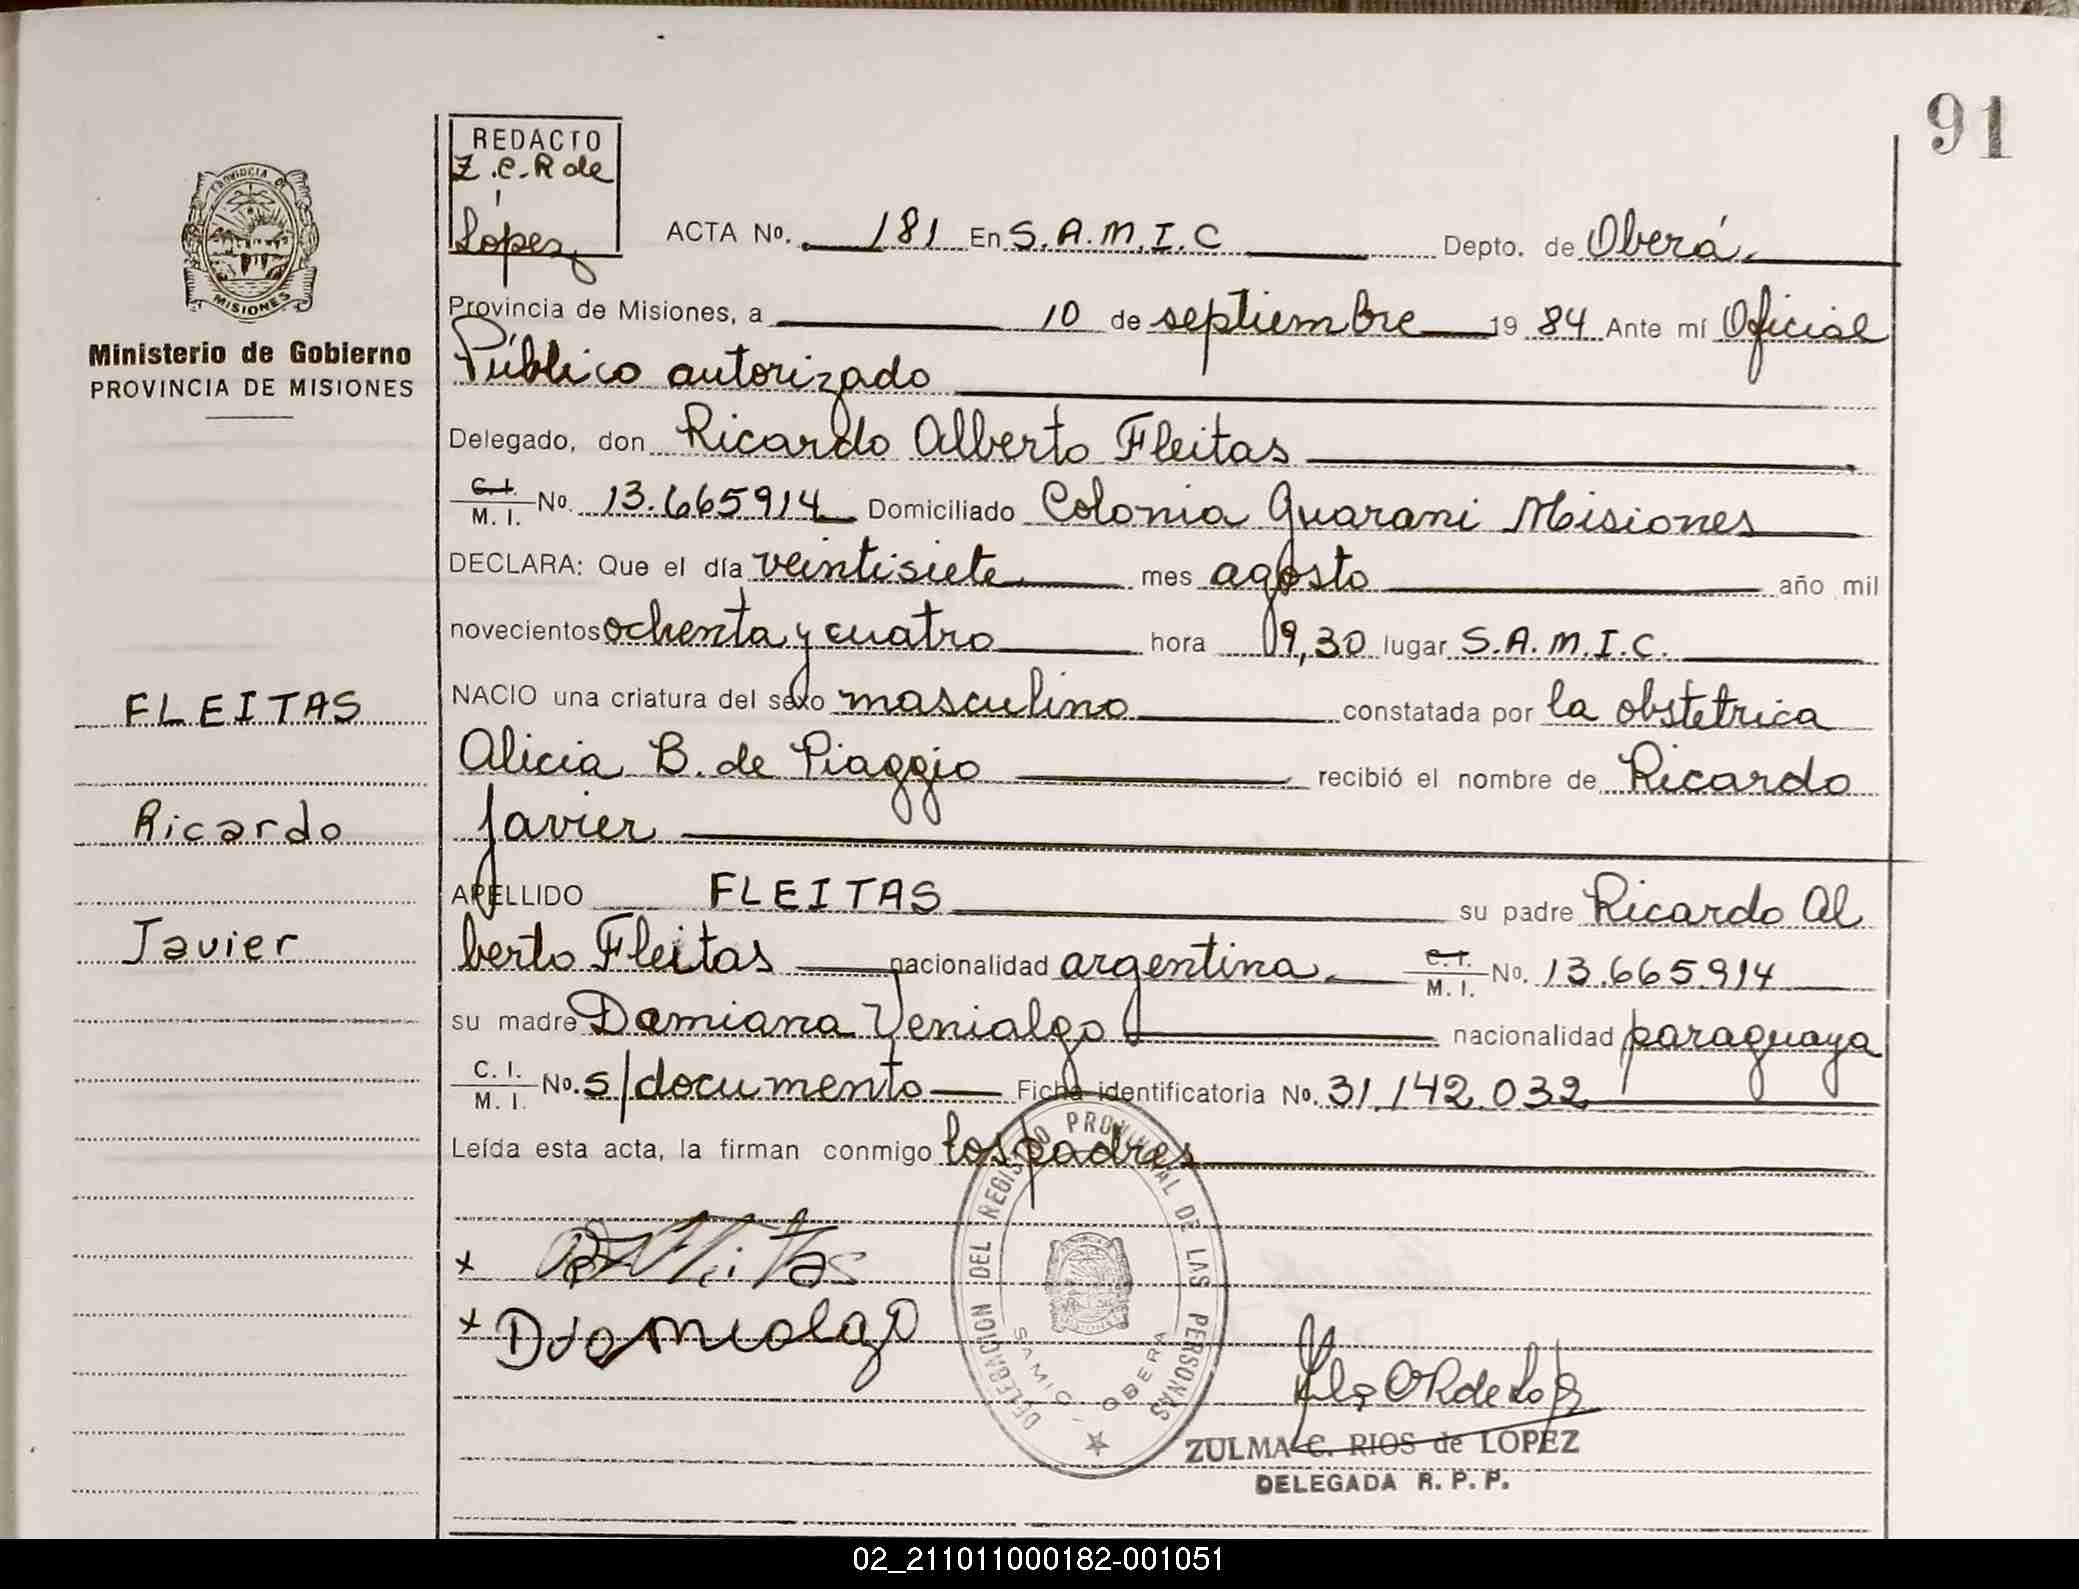 91
REDACTO
Z.C.R de
López
PROVINCIA DE
MISIONES
Ministerio de Gobierno
PROVINCIA DE MISIONES
ACTA No. 181 En S.A.M.I.C Depto. de Oberá
Provincia de Misiones, a 10 de septiembre 19 84 Ante mí Oficial
Público autorizado
Delegado, don Ricardo Alberto Fleitas
C.I.
M.I. No. 13.665914 Domiciliado Colonia Guarani Misiones
DECLARA: Que el día veintisiete mes agosto año mil
novecientos ochenta y cuatro hora 09,30 lugar S.A.M.I.C.
NACIO una criatura del sexo masculino constatada por la obstetrica
Alicia B. de Piaggio recibió el nombre de Ricardo
Javier
APELLIDO FLEITAS su padre Ricardo Al
berto Fleitas nacionalidad argentina C.I.
M.I. No. 13.665.914
su madre Damiana Venialgo nacionalidad paraguaya
C.I.
M.I. No. s/documento Ficha identificatoria No. 31.142.032
Leída esta acta, la firman conmigo los padres
FLEITAS
Ricardo
Javier
x
x
DELEGACION DEL REGISTRO PROVINCIAL DE LAS PERSONAS
SAMIC - OBERA
ZULMA C. RIOS de LOPEZ
DELEGADA R. P. P.
02_211011000182-001051